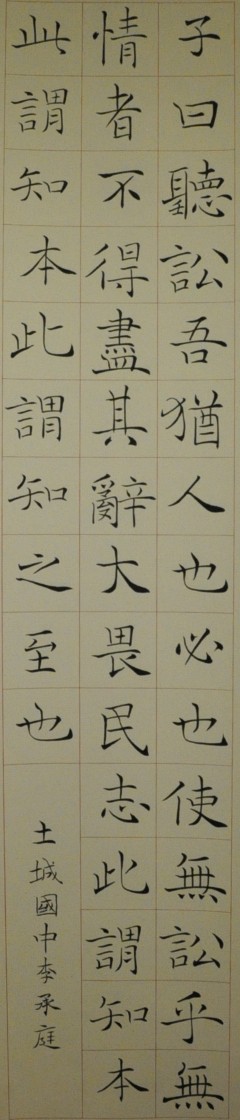 子曰聽訟吾猶人也必也使無訟乎無
情者不得盡其辭大畏民志此謂知本
此謂知本此謂知之至也
土城國中李承庭